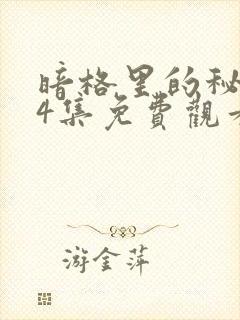 暗格里的秘
4集免費觀看
游金萍